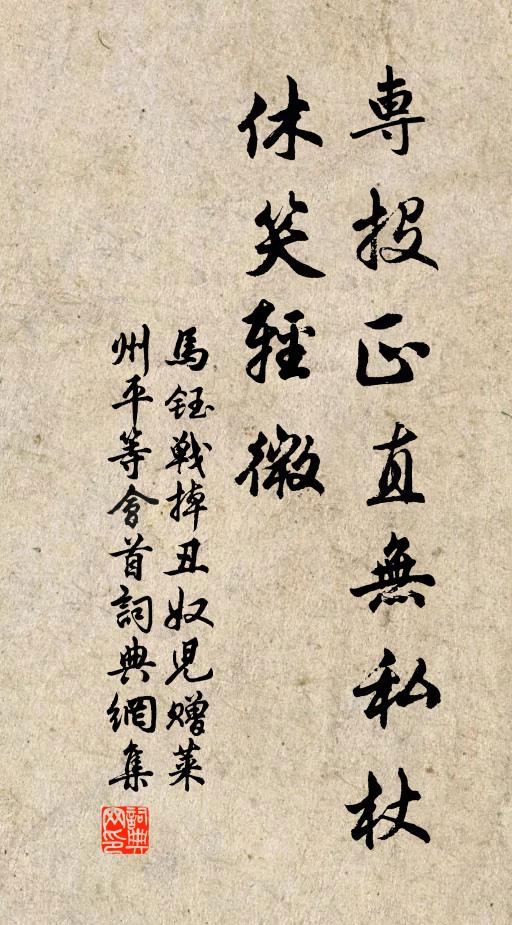 専投正直無私杖
休笑輕微
馬鈺戰掉丑奴児贈萊
州平等會首詞典網集
詞典
网印